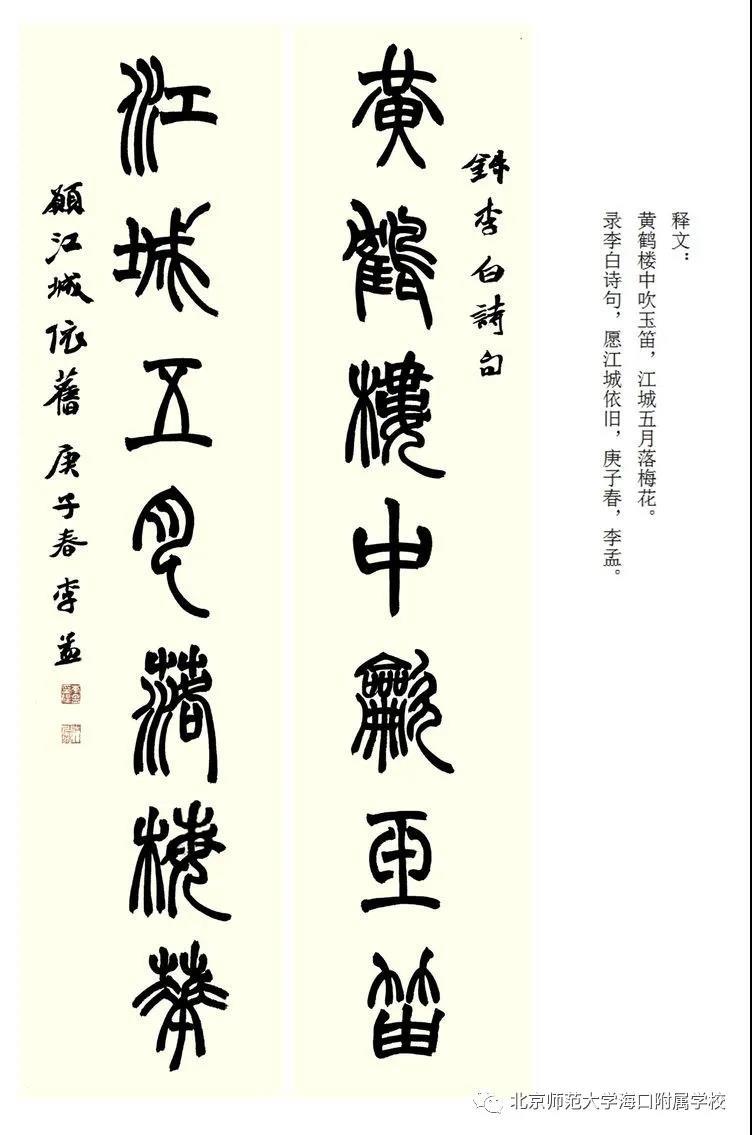 释文：
黄鹤楼中吹玉笛，江城五月落梅花。
录李白诗句，愿江城依旧，庚子春，李孟。
錄李白詩句
黃鶴樓中龡玉笛
江城五月落梅華
願江城依舊 庚子春 李孟
北京师范大学海口附属学校